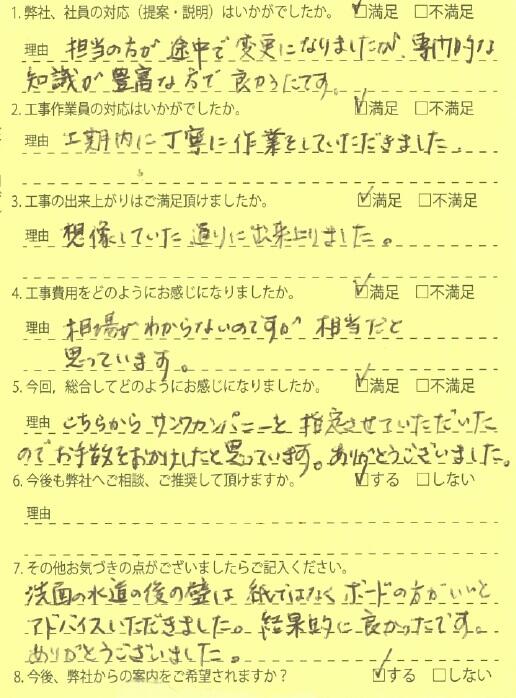 1. 弊社、社員の対応（提案・説明）はいかがでしたか。 ☑満足 □不満足
理由 担当の方が途中で変更になりましたが、専門的な
知識が豊富な方で良かったです。
2. 工事作業員の対応はいかがでしたか。 ☑満足 □不満足
理由 工期内に丁寧に作業をしていただきました。
3. 工事の出来上がりはご満足頂けましたか。 ☑満足 □不満足
理由 想像していた通りに出来上りました。
4. 工事費用をどのようにお感じになりましたか。 ☑満足 □不満足
理由 相場がわからないのですが 相当だと
思っています。
5. 今回，総合してどのようにお感じになりましたか。 ☑満足 □不満足
理由 こちらから サンワカンパニーと 指定させていただいた
のでお手数をおかけしたと思っています。ありがとうございました。
6. 今後も弊社へご相談、ご推奨して頂けますか。 ☑する □しない
理由
7. その他お気づきの点がございましたらご記入ください。
洗面の水道の後の壁は 紙ではなく ボードの方がいいと
アドバイスいただきました。結果的に良かったです。
ありがとうございました。
8. 今後、弊社からの案内をご希望されますか？ ☑する □しない